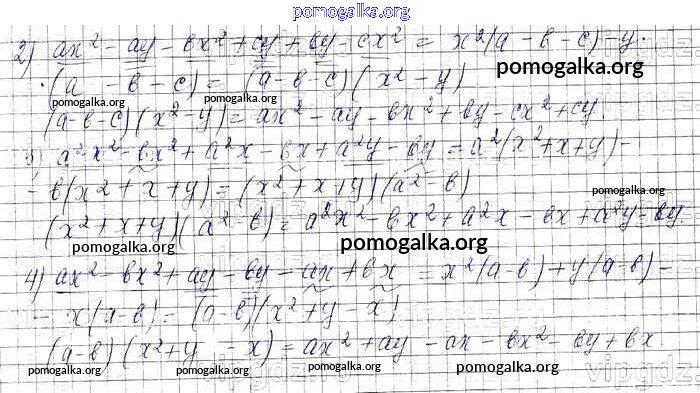 pomogalka.org
2) ax² - ay - bx² + cy + by - cx² = x²(a - b - c) - y·
·(a - b - c) = (a - b - c)(x² - y)
pomogalka.org
pomogalka.org
pomogalka.org
(a - b - c)(x² - y) = ax² - ay - bx² + by - cx² + cy
pomogalka.org
3) a²x² - bx² + a²x - bx + a²y - by = a²(x² + x + y) -
- b(x² + x + y) = (x² + x + y)(a² - b)
pomogalka.org
(x² + x + y)(a² - b) = a²x² - bx² + a²x - bx + a²y - by
pomogalka.org
pomogalka.org
4) ax² - bx² + ay - by - ax + bx = x²(a - b) + y(a - b) -
- x(a - b) = (a - b)(x² + y - x)
(a - b)(x² + y - x) = ax² + ay - ax - bx² - by + bx
pomogalka.org
pomogalka.org
pomogalka.org
pomogalka.org
vipgdz